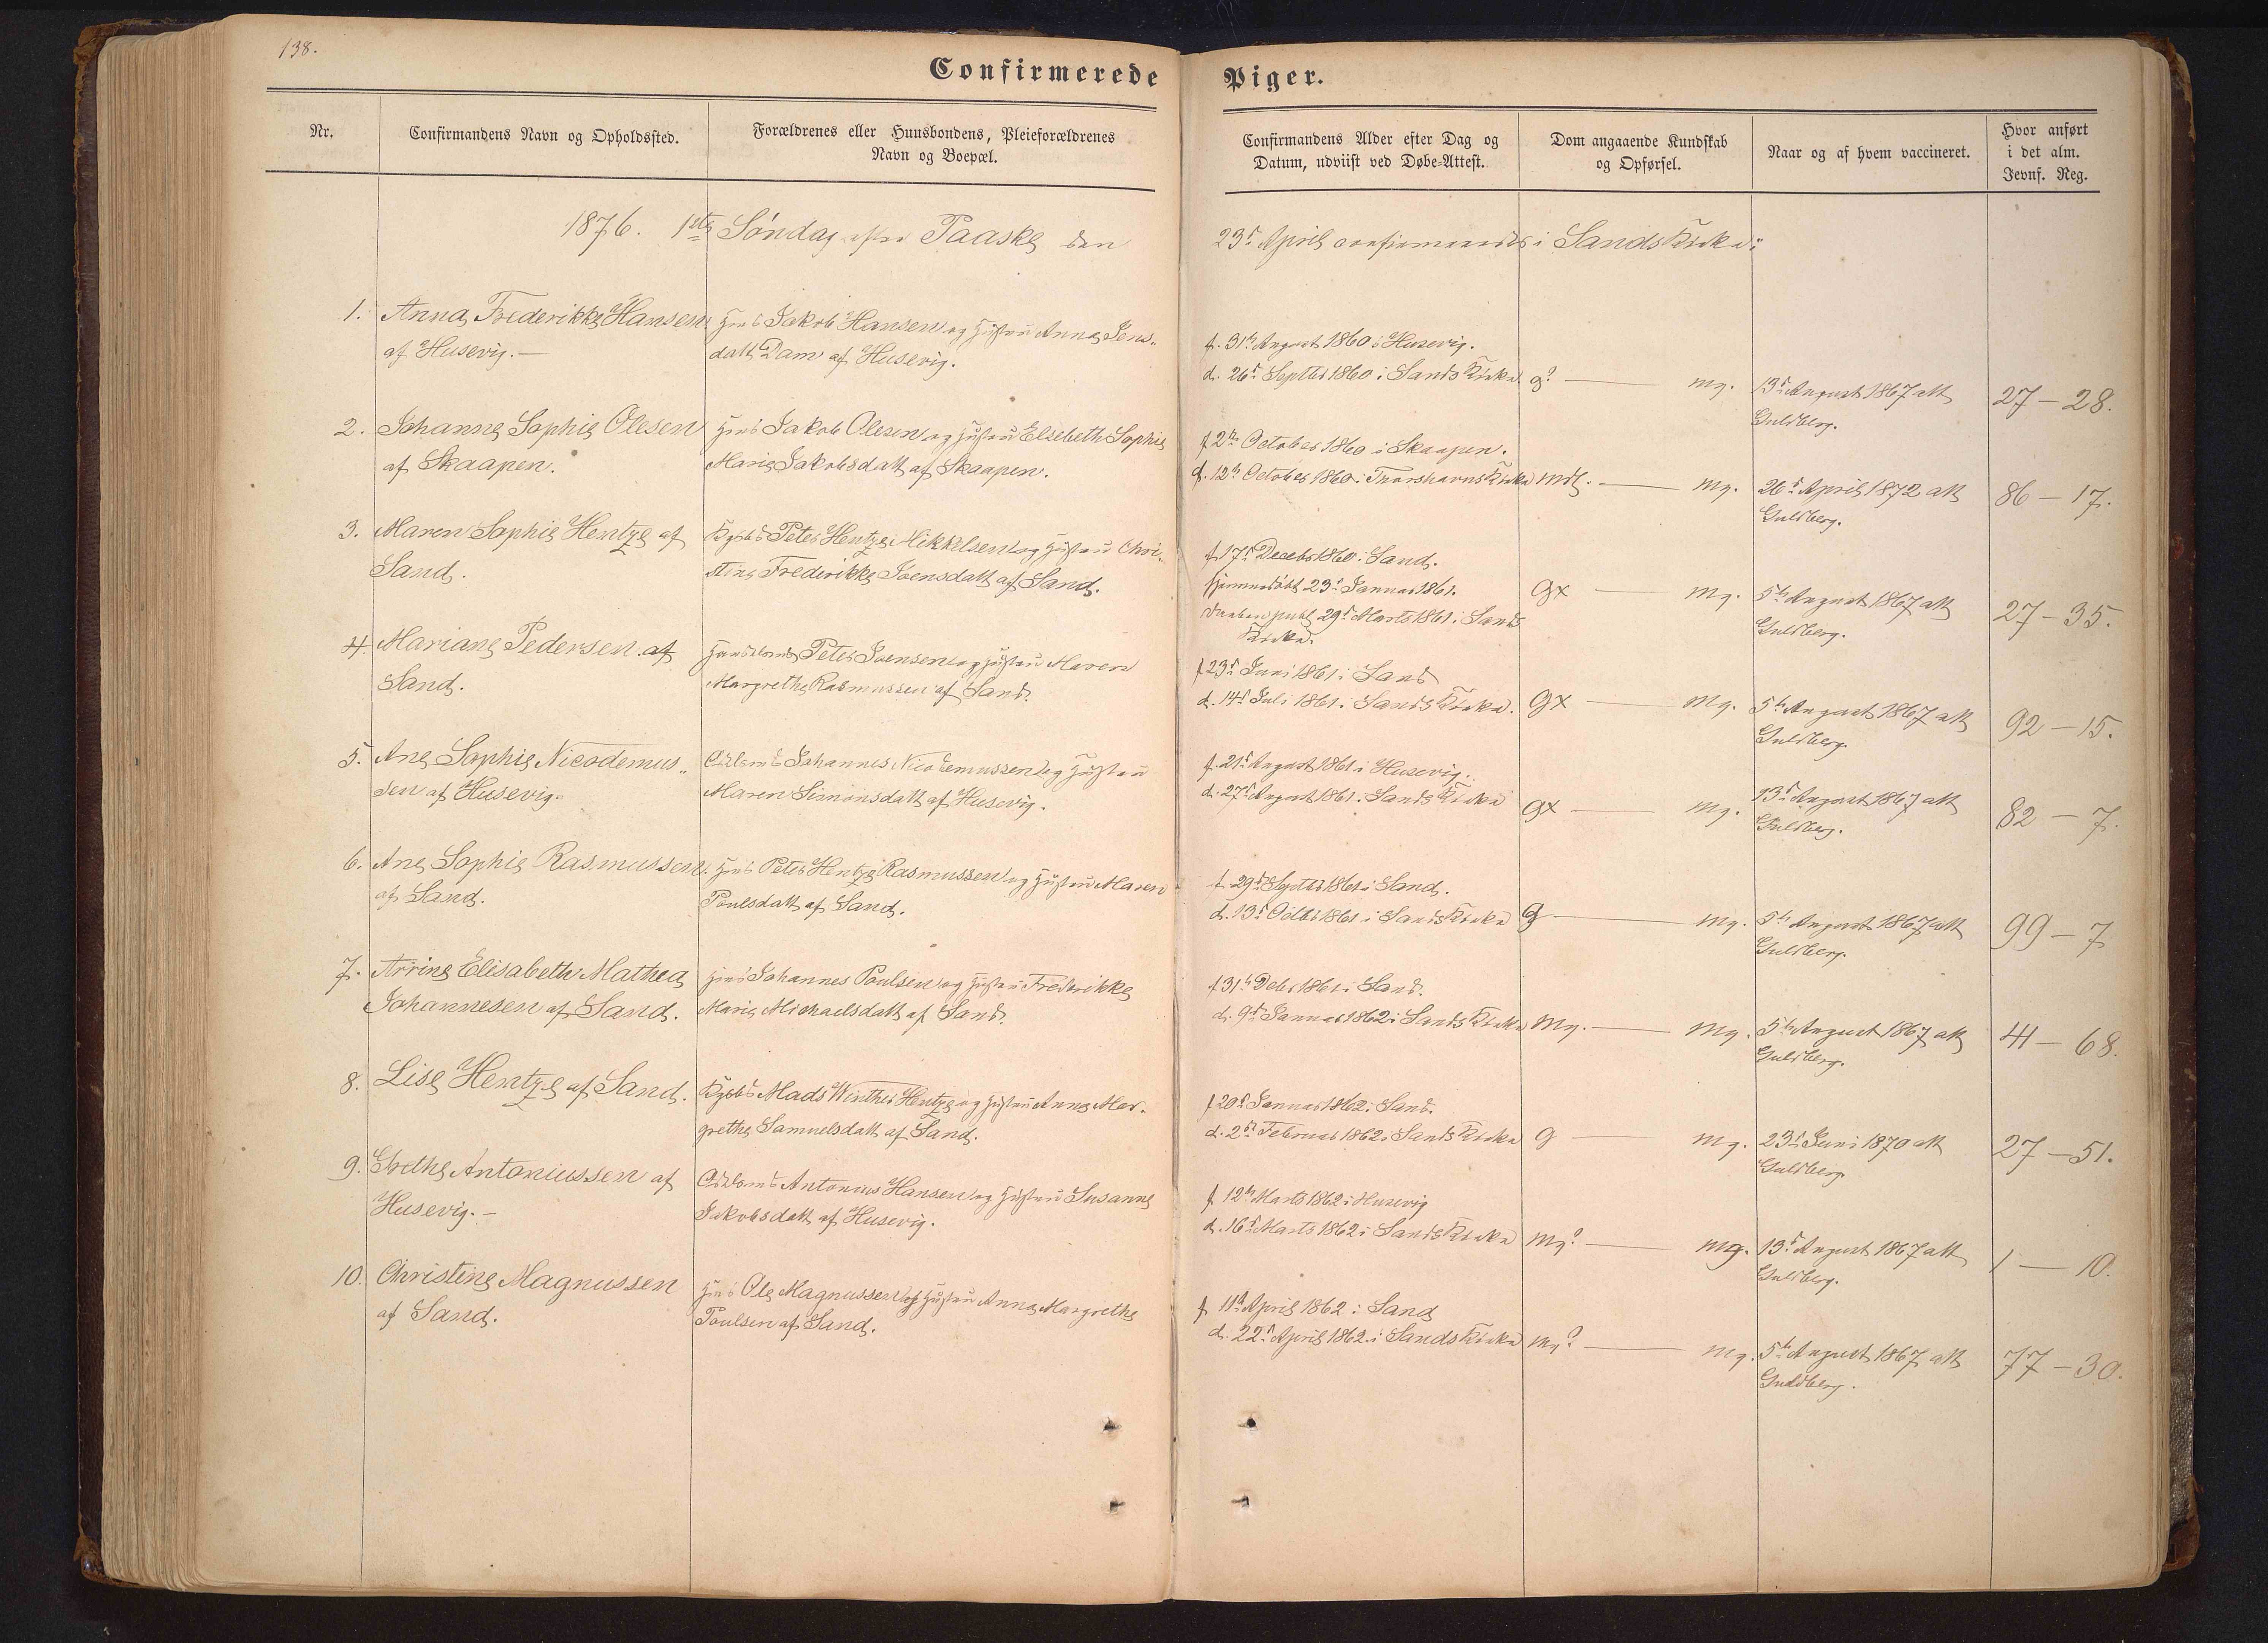 138.
Confirmerede Piger.
Nr.
Confirmandens Navn og Opholdssted.
Forældrenes eller Huusbondens, Pleieforældrenes
Navn og Boepæl.
Confirmandens Alder efter Dag og
Datum, udviist ved Døbe-Attest.
Dom angaaende Kundskab
og Opførsel.
Naar og af hvem vaccineret.
Hvor anført
i det alm.
Jevnf. Reg.
1876. 1ste Søndag efter Paaske den 23d April confirmerede i Sands Kirke:
1. Anna Frederikke Hansen
af Husevig.—
Jakob Hansen og Hustru Anna Jens-
datt Dam af Husevig.
f. 31te August 1860 i Husevig.
d. 26d Septbr 1860 i Sands Kirke
g? — mg.
13d August 1867 att
Guldberg.
27 – 28.
2. Johanne Sophie Olesen
af Skaapen.
Jakob Olesen og Hustru Elsebeth Sophie
Marie Jakobsdatt af Skaapen.
f 2den October 1860 i Skaapen.
d. 12te October 1860 i Thorshavns Kirke
mdl. — mg.
26d April 1872 att
Guldberg.
86 – 17.
3. Maren Sophie Hentze af
Sand.
Peter Hentze Mikkelsen og Hustru Chri-
stine Frederikke Joensdatt af Sand.
f 17d Decbr 1860 i Sand.
hjemmedøbt 23d Januar 1861.
Daaben publ 29d Marts 1861 i Sands
Kirke.
gx — mg.
5te August 1867 att
Guldberg.
27 – 35.
4. Mariane Pedersen af
Sand.
Peter Joensen og Hustru Maren
Margrethe Rasmussen af Sand.
f 23d Juni 1861 i Sand
d. 14d Juli 1861 i Sands Kirke.
gx — mg.
5te August 1867 att
Guldberg.
92 – 15.
5. Ane Sophie Nicodemus-
sen af Husevig.
Johannes Nicodemussen og Hustru
Maren Simonsdatt af Husevig.
f. 21d August 1861 i Husevig.
d. 27d August 1861 i Sands Kirke
gx — mg.
13d August 1867 att
Guldberg.
82 – 7.
6. Ane Sophie Rasmussen
af Sand.
Peter Hentze Rasmussen og Hustru Maren
Poulsdatt af Sand.
f 29d Septbr 1861 i Sand.
d. 13d Octbr 1861 i Sands Kirke
g — mg.
5te August 1867 att
Guldberg.
99 – 7
7. Arrine Elisabeth Mathea
Johannesen af Sand.
Johannes Poulsen og Hustru Frederikke
Marie Michaelsdatt af Sand.
f 31te Debr 1861 i Sand.
d. 9d Januar 1862 i Sands Kirke
mg. — mg.
5te August 1867 att
Guldberg.
41 – 68.
8. Lise Hentze af Sand.
Mads Winther Hentze og Hustru Anna Mar-
grethe Samuelsdatt af Sand.
f 20d Januar 1862 i Sand.
d. 2den Februar 1862 i Sands Kirke
g — mg.
23d Juni 1870 att
Guldberg.
27 – 51.
9. Grethe Antoniussen af
Husevig.–
Antonius Hansen og Hustru Susanne
Jakobsdatt af Husevig.
f 12te Marts 1862 i Husevig
d. 16d Marts 1862 i Sands Kirke
mg? — mg.
13d August 1867 att
Guldberg.
1 — 10.
10. Christine Magnussen
af Sand.
Ole Magnussen og Hustru Anna Margrethe
Poulsen af Sand.
f 11te April 1862 i Sand
d. 22d April 1862 i Sands Kirke
mg? — mg.
5te August 1867 att
Guldberg.
77 – 30.